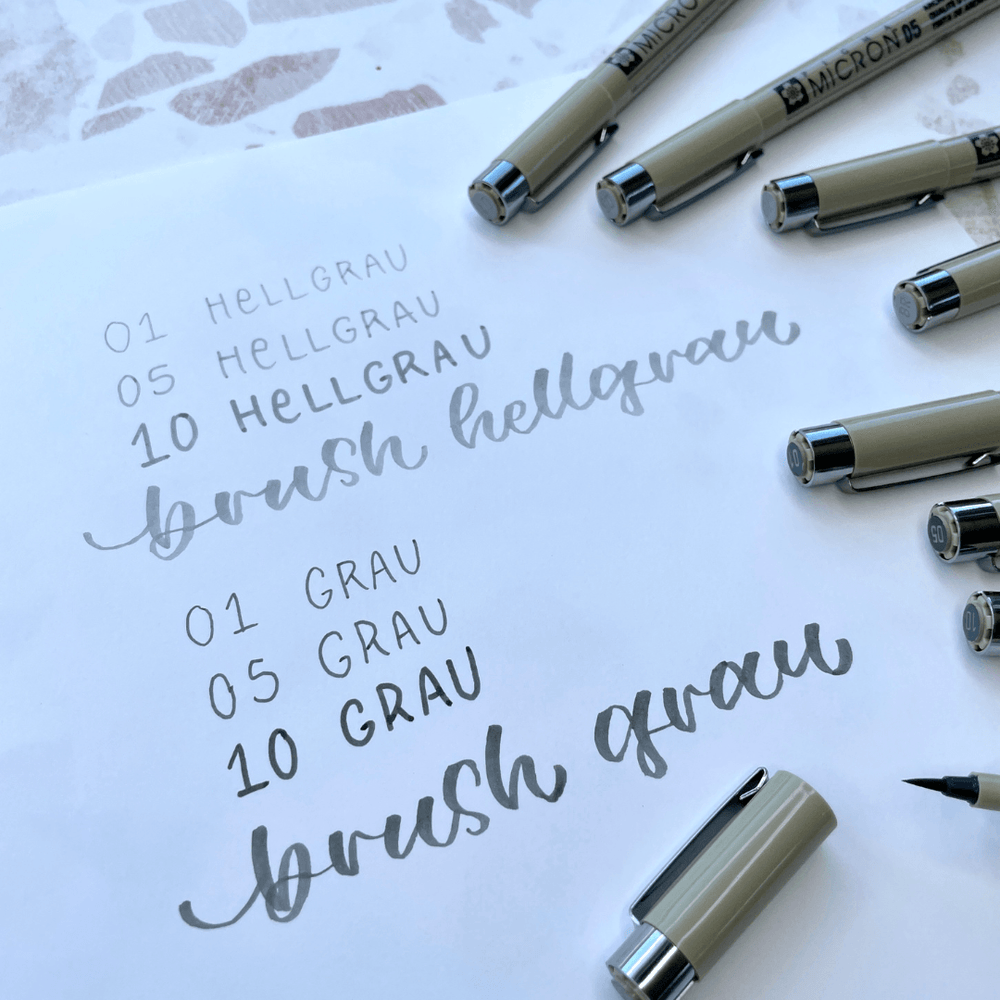 MICRON
MICRON 05
01 HeLLGRAU
05 HeLLGRAU
10 HeLLGRAU
brush hellgrau
01 GRAU
05 GRAU
10 GRAU
brush grau
01
05
10